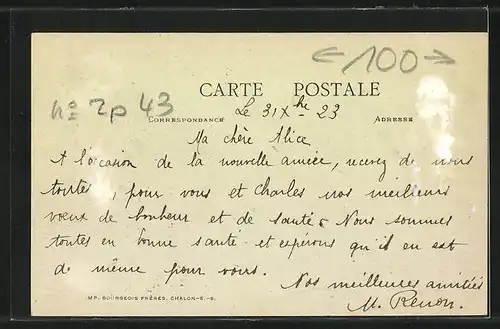 ← 100 →
CARTE POSTALE
No 2p 43
Le 31 Xbre 23
CORRESPONDANCE
ADRESSE
Ma chère Alice
A l'occasion de la nouvelle année, recevez de nous
toutes, pour vous et Charles nos meilleurs
vœux de bonheur et de santé. Nous sommes
toutes en bonne santé et espérons qu'il en est
de même pour vous.
Nos meilleures amitiés
M. Renon.
MP. BOURGEOIS FRÈRES, CHALON-S.-S.